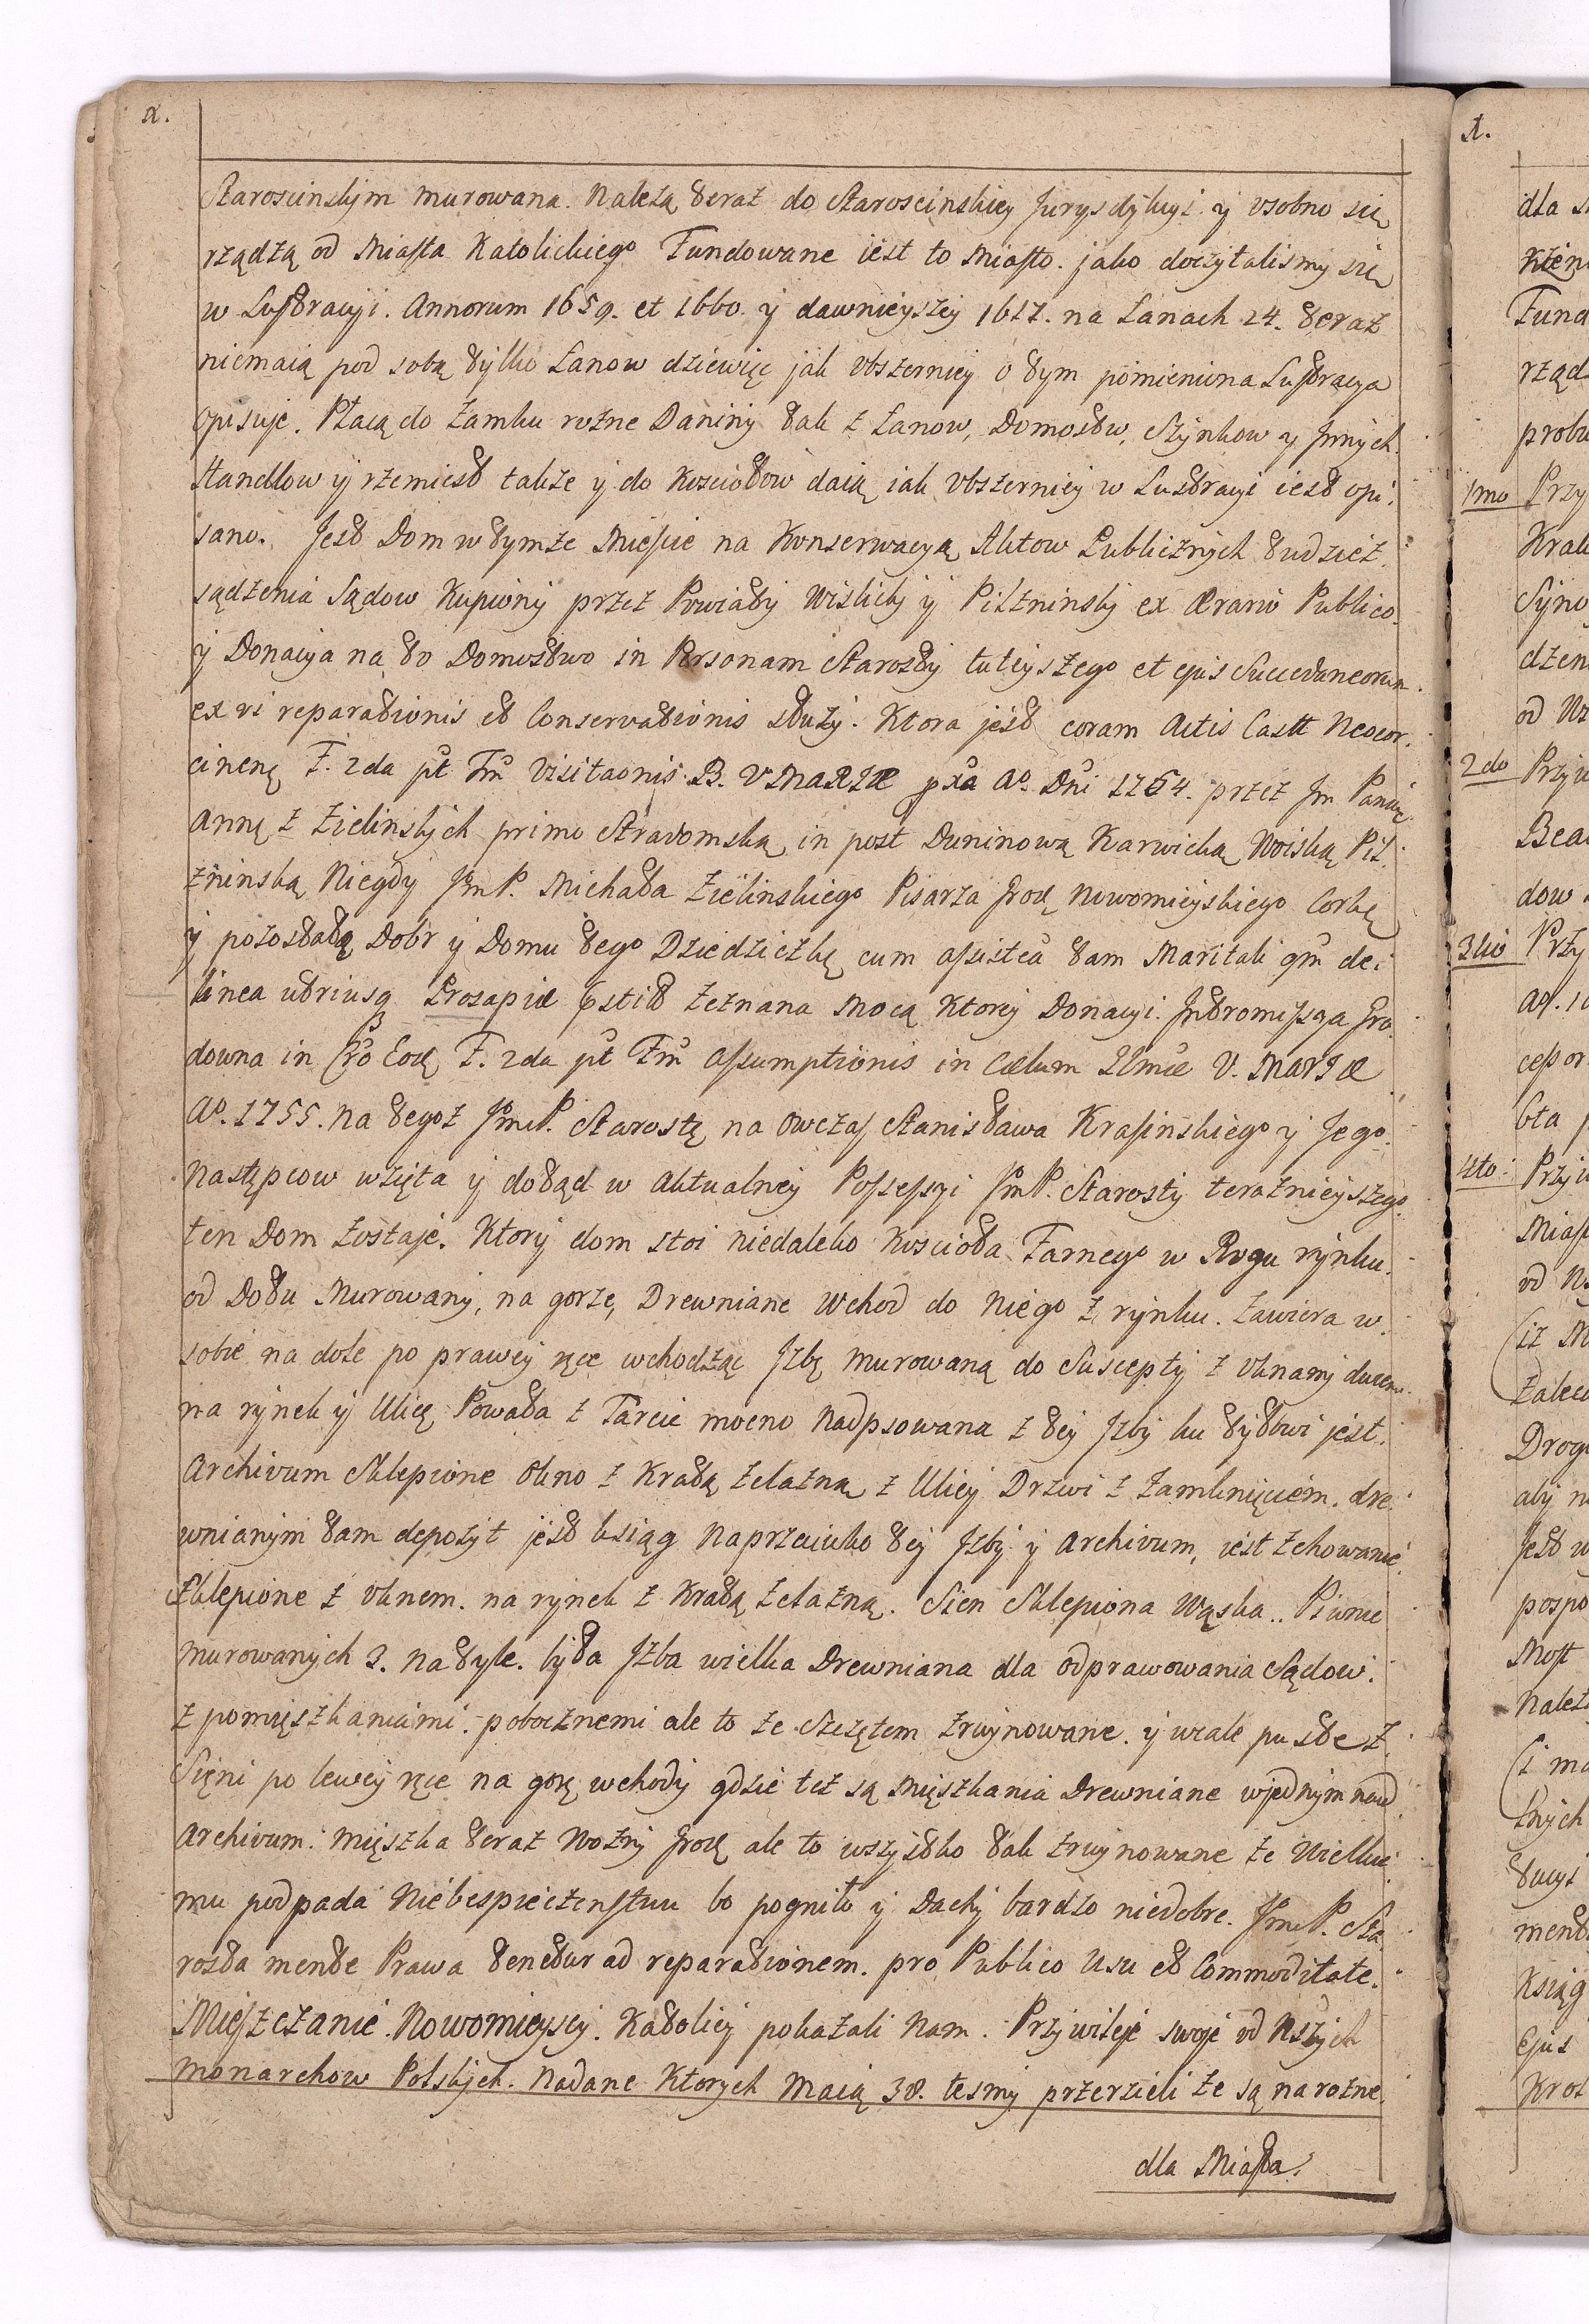 Staroscinskym murowana. Należą teraz do Staroscinskiey Jurysdykcyi y osobno się
rządzą od Miasta Katolickiego Fundowane iest to Miasto. jako doczytalismy się
w Lustracyi. Annorum 1659. et 1660. y dawnieyszey 1617. na Łanach 24. teraz
niemaią pod sobą tylko Łanow dziewięc jak obszerniey o tym pomieniona Lustracya
opisuje. Płacą do Zamku rożne Daniny tak z Łanow, Domostw, Szynkow y Jnnych
Handlow y rzemiesł także y do Kosciołow daią iak obszerniey w Lustracyi iest opi.
sano. Jest Dom w tymże Miescie na Konserwacyą Aktow Publicznych tudziesz
sądzenia Sądow Kupiony przez Powiaty Wislicky y Pilzninsky ex Ærario Publico
y Donacya na to Domostwo in Personam Starosty tuteyszego et ejus Succedaneorum
ex vi reparationis et Conservationis służy. Ktora jest coram Actis Castr Neocor.
cinenę F. 2da pt Fm̃ Visitaonis B. V MARIÆ pxa Aº. Dni 1754. przez Jm Panią
Annę z Zielinskych primo Stradomską in post Duninową Karwicką Woiską Pil.
znińską Niegdy JmP. Michała Zielinskiego Pisarza Grodź Nowomieyskiego Corkę
y pozostałą Dobr y Domu tego Dziedziczkę cum assistca tam Maritali qm̃ de.
linea utriusq Prosapiæ stit zeznana Mocą Ktorey Donacyi. Jntromissya Gro
downa in Cro Eodę F. 2da pt Fm̃ Assumptionis in Cælum Bv̄mæ V. MARIÆ
Aº. 1755. na tegoż JmP. Starostę na owczas Stanisława Krasinskiego y Jego
Następcow wzięta y dotąd w Aktualney Possessyi JmP. Starosty teraznieyszego
ten Dom zostaje. Ktory dom stoi niedaleko Koscioła Farnego w Rogu rynku.
od Dołu Murowany, na gorze, Drewniane Wchod do niego z rynku. Zawiera w
sobie na dole po prawey ręce wchodząc Jzbę murowaną do Suscepty z oknamy dwema
na rynek y Ulicę Powała z Tarcic mocno Nadpsowana z tey Jzby ku tyłowi jest.
Archivum Sklepione Okno z Kratą żelazną z Ulicy Drzwi z Zamknięciem. dre
wnianym tam depozyt jest ksiąg Naprzeciwko tey Jzby y Archivum, iest zchowanie
Sklepione z oknem. na rynek z Kratą żelazną. Sien Sklepiona Wąska.. Piwnic
murowanych 3. na tyle. była Jzba wielka Drewniana dla odprawowania Sądow.
z pomięszkaniami. pobocznemi ale to ze szczętem zruynowane. y wcale puste z
Sięni po lewey ręce na gorę wchody gdzie też są Mięszkania Drewniane w jednym nad
Archivum. mięszka teraz Wozny Grodź ale to wszystko tak zruynowane że Wielkie
mu podpada Niebespieczenstwu bo pogniło y Dachy bardzo niedobre. JmP. Sta
rosta mente Prawa tenetur ad reparationem. pro Publico Usu et Commoditate.
Mieszczanie Nowomieyscy. Katolicy pokazali Nam. Przywileje swoje od Nszych
Monarchow Polskych. Nadane Ktorych Maią 38. tesmy przerzieli że są na rozne.
dla Miasta.
1mo
2do
3tio
4to